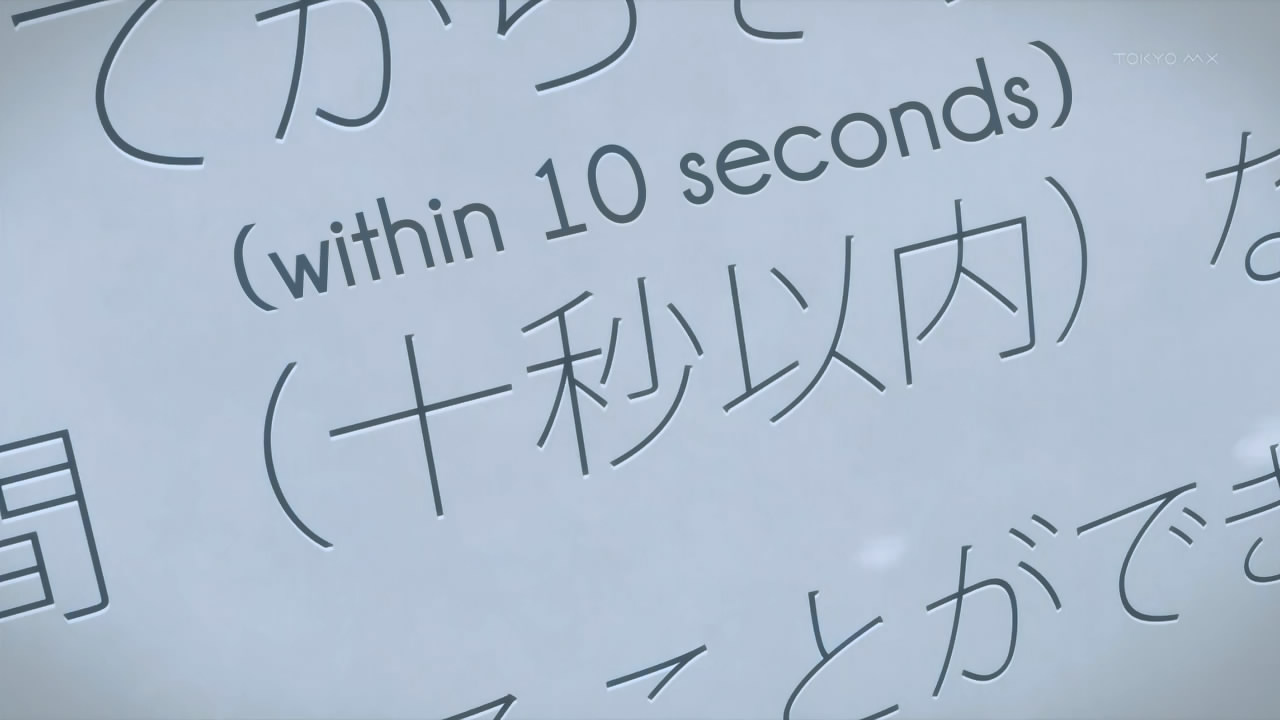 てからで
TOKYO MX
(within 10 seconds)
(十秒以内)
な
間
ことができ